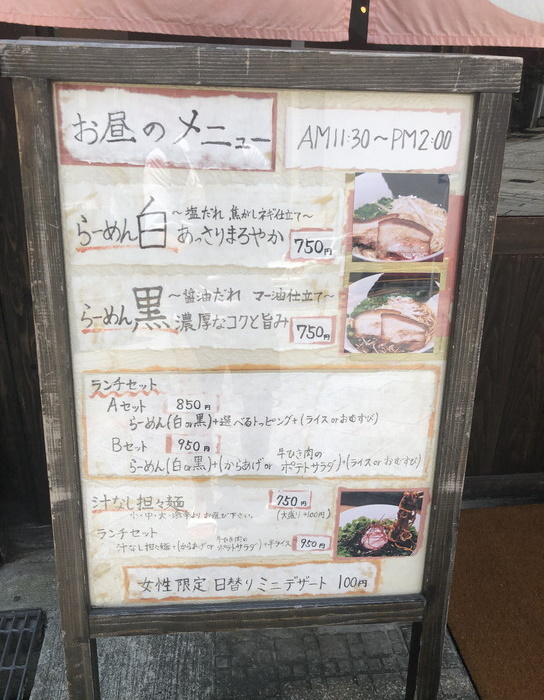 お昼のメニュー
AM11:30～PM2:00
らーめん白
～塩だれ 焦がしネギ仕立て～
あっさりまろやか
750円
らーめん黒
～醤油だれ マー油仕立て～
濃厚なコクと旨み
750円
ランチセット
Aセット 850円
らーめん(白or黒)+選べるトッピング+(ライスorおむすび)
Bセット 950円
らーめん(白or黒)+(からあげor牛ひき肉のポテトサラダ)+(ライスorおむすび)
汁なし担々麺 750円
小・中・大・よりお選び下さい。 (大盛り+100円)
ランチセット
汁なし担々麺+(からあげor牛ひき肉のポテトサラダ)+半ライス 950円
女性限定 日替り ミニデザート 100円